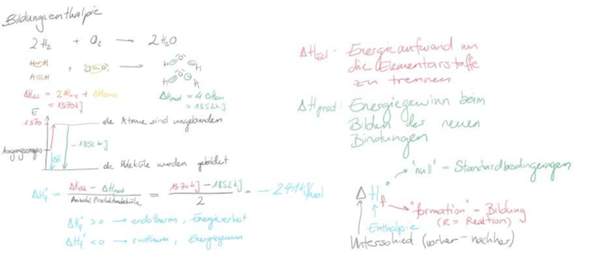 Bildungsenthalpie
2H₂ + O₂ → 2H₂O
H H
ΔH = 2 H + 
= 1570 kJ
ΔHprod = 4 
= 1852 kJ
E
1570
die Atome sind ungebunden
- 1852 kJ
Ausgangsenergie
die Moleküle wurden gebildet
ΔHf° = ΔHed - ΔHprod / Anzahl Produktmoleküle = 1570 kJ - 1852 kJ / 2 = -241 kJ/mol
ΔHf° > 0 → endotherm, Energieverlust
ΔHf° < 0 → exotherm, Energiegewinn
ΔHed : Energieaufwand um
die Elementarstoffe
zu trennen
ΔHprod : Energiegewinn beim
Bilden der neuen
Bindungen
"null" - Standardbedingungen
ΔHf°
"formation" - Bildung
(R = Reaktion)
Enthalpie
Unterschied (vorher - nachher)